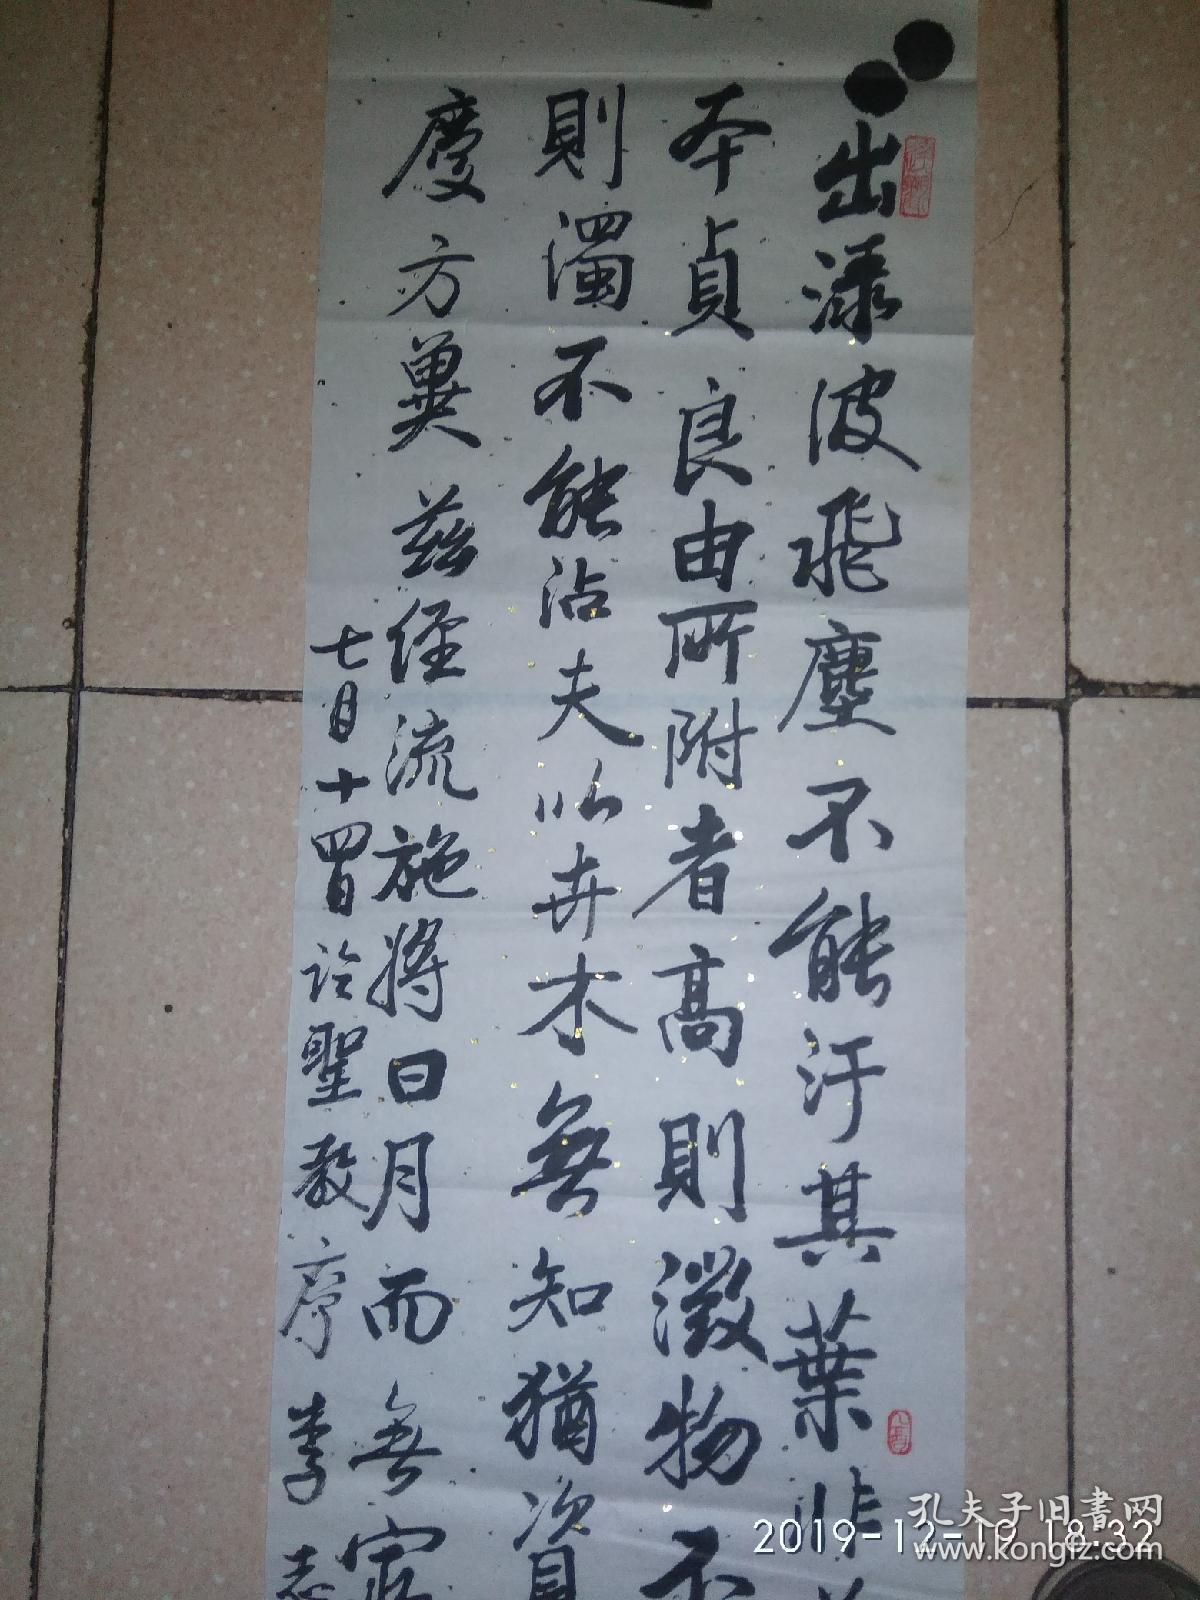 出渌波飛塵不能汙其葉非
本貞良由所附者高則濁物不
則濁不能沾夫以卉木無知猶資
慶方兾茲經流施將日月而無窮
七月十四日 論聖教序 李志
2019-12-10 18:32
孔夫子旧书网
www.kongfz.com